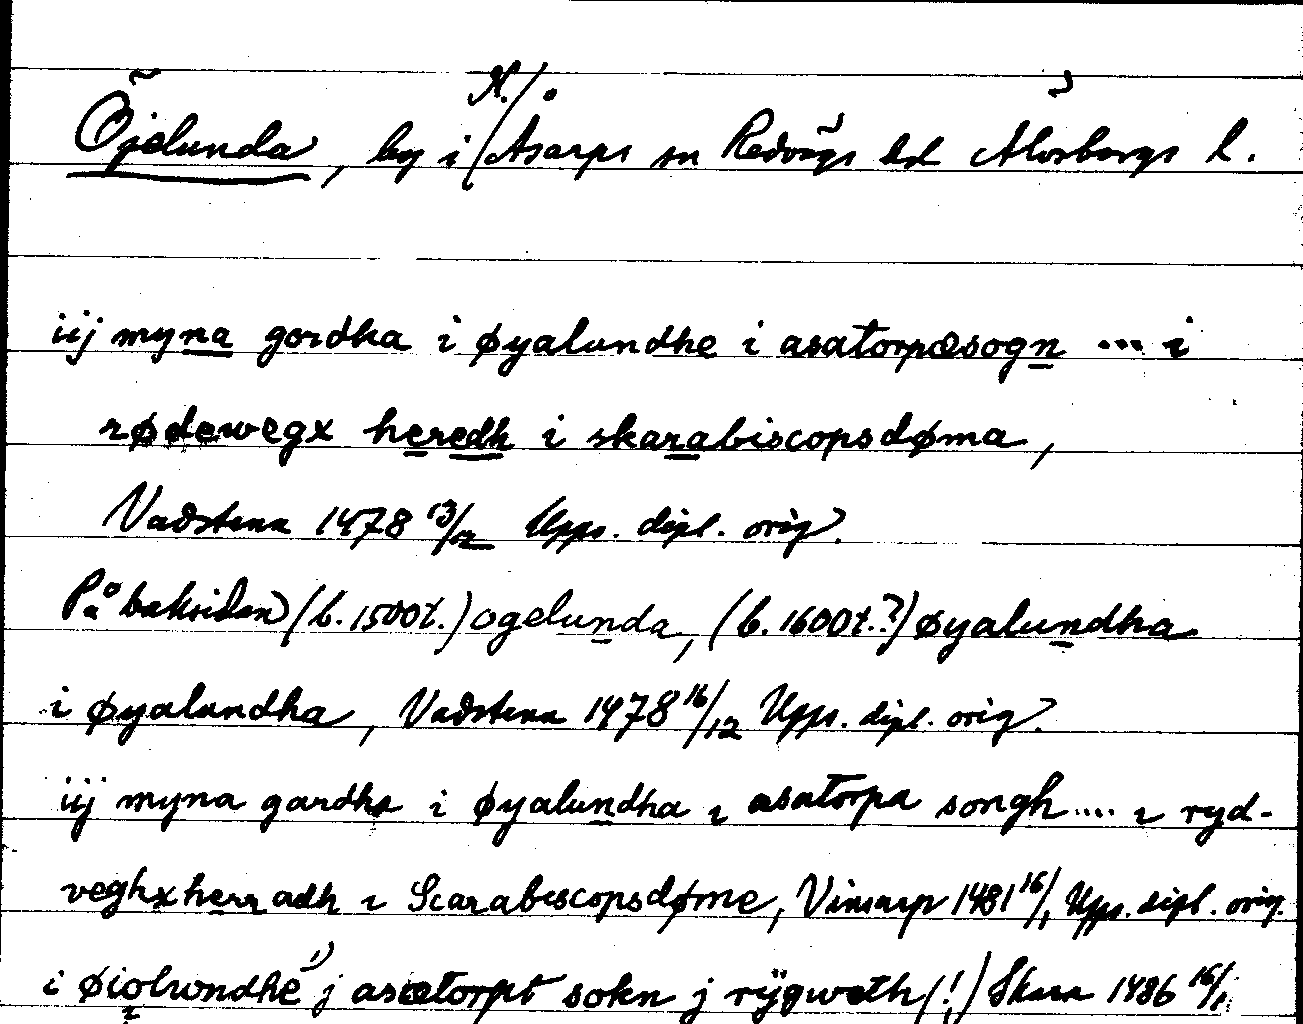 Öjelunda, by i N. Åsarps sn Redvägs hd Älvsborgs l.
iij myna gordha i øyalundhe i asatorpæsogn ... i
rødewegx heredh i skarabiscopsdøma,
Vadstena 1478 13/12 Upps. dipl. orig.
På baksidan (b. 1500t.) ogelunda, (b. 1600t.?) øyalundha
i øyalundha, Vadstena 1478 16/12 Upps. dipl. orig.
iij myna gardha i øyalundha i asatorpa songh .... i ryd-
veghx herradh i Scarabiscopsdøme, Vinsarp 1481 16/1 Upps. dipl. orig.
i øiolwndhe 1) j asætorpt sokn j rÿgweth (!) Skara 1486 16/1